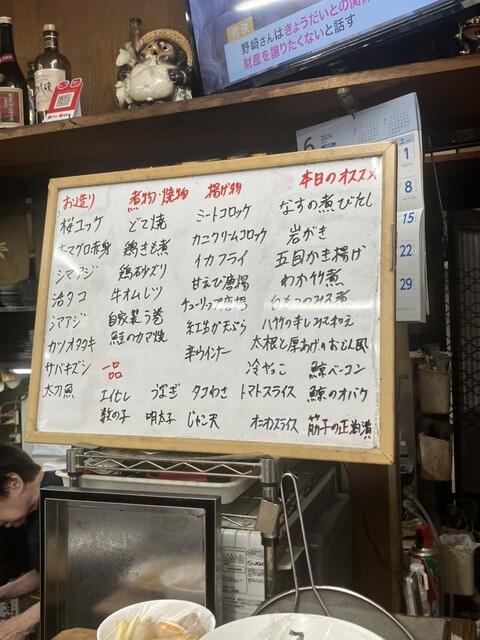 判決
野﨑さんはきょうだいとの関係
財産を譲りたくないと話す
6
2024
1
8
15
22
29
お造り
桜ユッケ
本マグロ赤身
シマアジ
活タコ
シマアジ
カツオタタキ
サバキズシ
太刀魚
煮物・焼物
どて焼
鶏きも煮
鶏砂ずり
牛オムレツ
自家製う巻
鮭のカマ焼
揚げ物
ミートコロッケ
カニクリームコロッケ
イカフライ
甘えび唐揚
チューリップ唐揚
紅生姜天ぷら
辛ウインナー
本日のオススメ
なすの煮びたし
岩がき
五目かき揚げ
わか竹煮
白もつのみそ煮
ハ竹の辛しみそ和え
大根と厚あげのおでん風
冷やっこ 鯨ベーコン
トマトスライス 鯨のオバケ
オニオンスライス 筋子の正油漬
一品
エイヒレ うなぎ タコわさ
数の子 明太子 じゃこ天